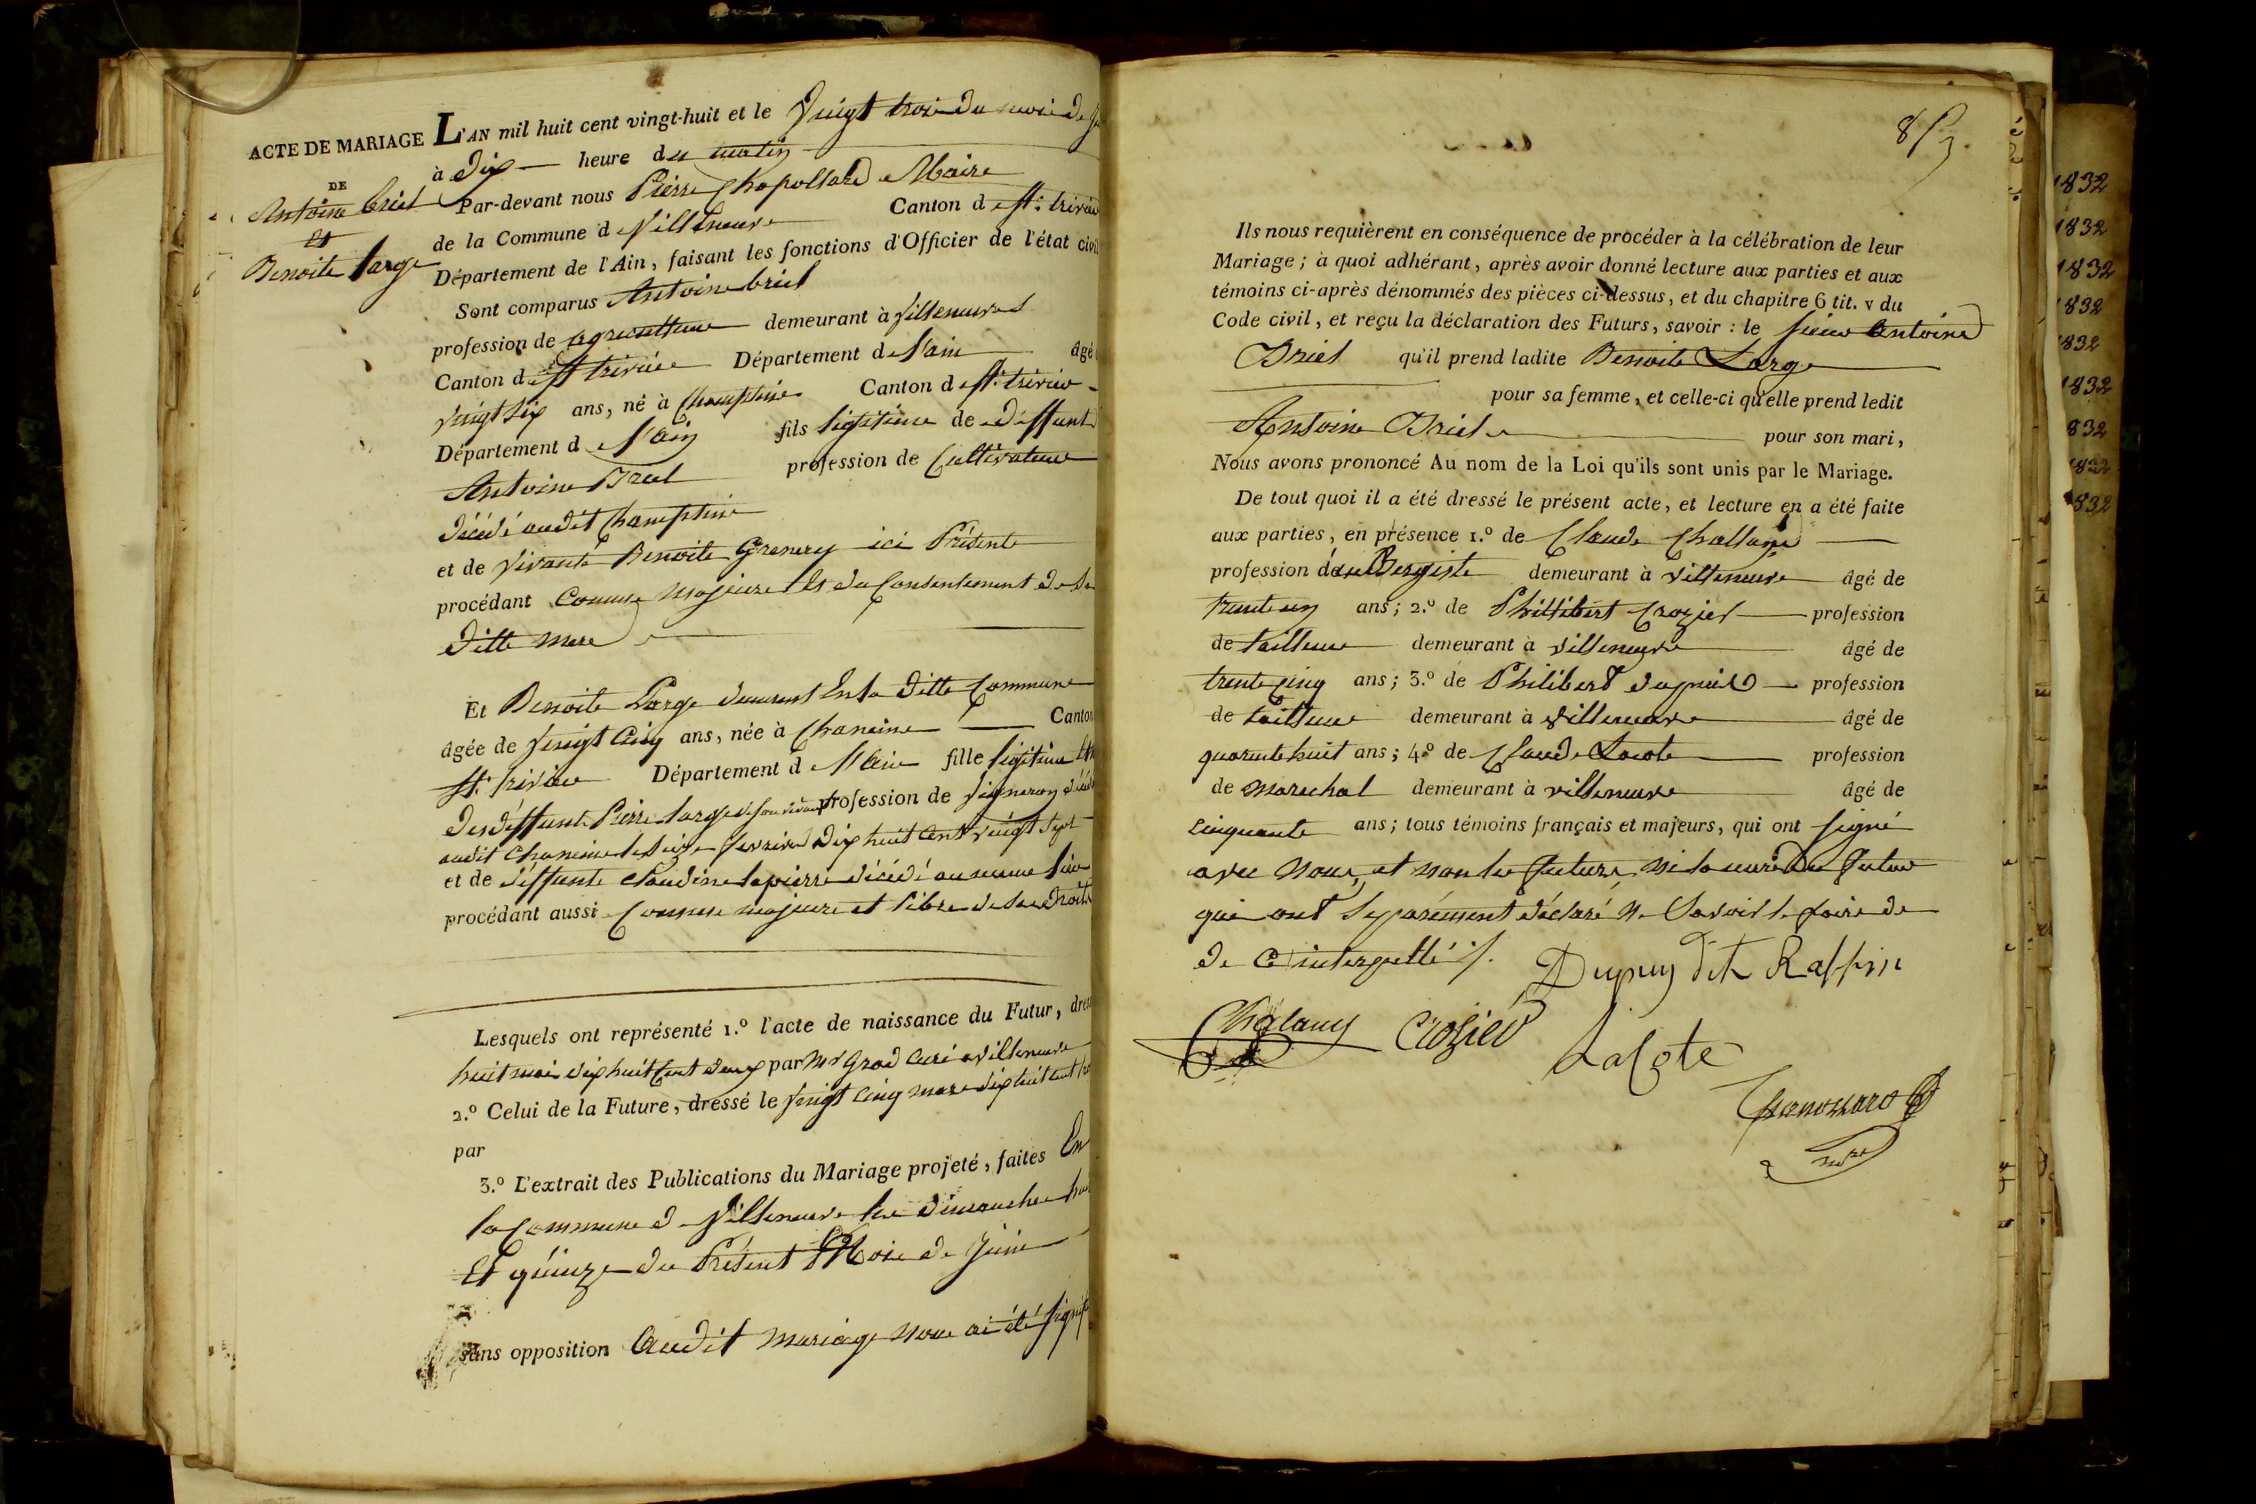 ACTE DE MARIAGE
DE
Antoine briel
et
Benoite large
L'AN mil huit cent vingt-huit et le Vingt trois du mois de
à Dix heure du matin
Par-devant nous Pierre Chapolard Maire
de la Commune d Villeneuve Canton d St. trivier
Département de l'Ain, faisant les fonctions d'Officier de l'état civil
Sont comparus Antoine briel
profession de agriculteur demeurant à villeneuve
Canton d St trivier Département d l'ain âgé
vingt six ans, né à Champteins Canton d St. trivier
Département d l'ain fils légitime de deffunt
Antoine Briel profession de Cultivateur
décédé audit Champteins
et de vivante Benoite Grenery ici Présente
procédant Comme majeure et du Consentement de sa
ditte mere
Et Benoite Large demeurant En la ditte Commune
âgée de vingt cinq ans, née à Chaneins Canton
St. trivier Département d l'ain fille légitime
des deffunts Pierre large de son vivant profession de vigneron
audit Chaneins le seize fevrier dix huit cent vingt sept
et de deffunte Claudine lapierre décédé au meme lieu
procédant aussi Comme majeure et libre de ses droits
Lesquels ont représenté 1.º l'acte de naissance du Futur,
huit mai dix huit Cent deux par Mr Grad Curé a villeneuve
2.º Celui de la Future, dressé le vingt cinq mars dix huit cent
par
3.º L'extrait des Publications du Mariage projeté, faites En
la Commune de villeneuve les dimanches huit
Et quinze du Présent Mois de Juin
sans opposition audit mariage nous ai été
Ils nous requièrent en conséquence de procéder à la célébration de leur
Mariage; à quoi adhérant, après avoir donné lecture aux parties et aux
témoins ci-après dénommés des pièces ci-dessus, et du chapitre 6 tit. v du
Code civil, et reçu la déclaration des Futurs, savoir : le sieur Antoine
Briel qu'il prend ladite Benoite Large
pour sa femme, et celle-ci qu'elle prend ledit
Antoine Briel pour son mari,
Nous avons prononcé Au nom de la Loi qu'ils sont unis par le Mariage.
De tout quoi il a été dressé le présent acte, et lecture en a été faite
aux parties, en présence 1.º de Claude Challand
profession d'auBergiste demeurant à villeneuve âgé de
trente un ans; 2.º de Phillibert Crozier profession
de tailleur demeurant à villeneuve âgé de
trente cinq ans; 3.º de Philibert dupuid profession
de tailleur demeurant à villeneuve âgé de
quarante huit ans; 4.º de Claude Lacote profession
de marechal demeurant à villeneuve âgé de
cinquante ans; tous témoins français et majeurs, qui ont signé
avec nous, et non les future ni la mere du futur
qui ont separément déclaré ne savoir le faire de
de ce interpellé
Dupuy dit Raffin
Chalany Crozier
Lacote
1832
1832
1832
1832
1832
1832
832
1832
832